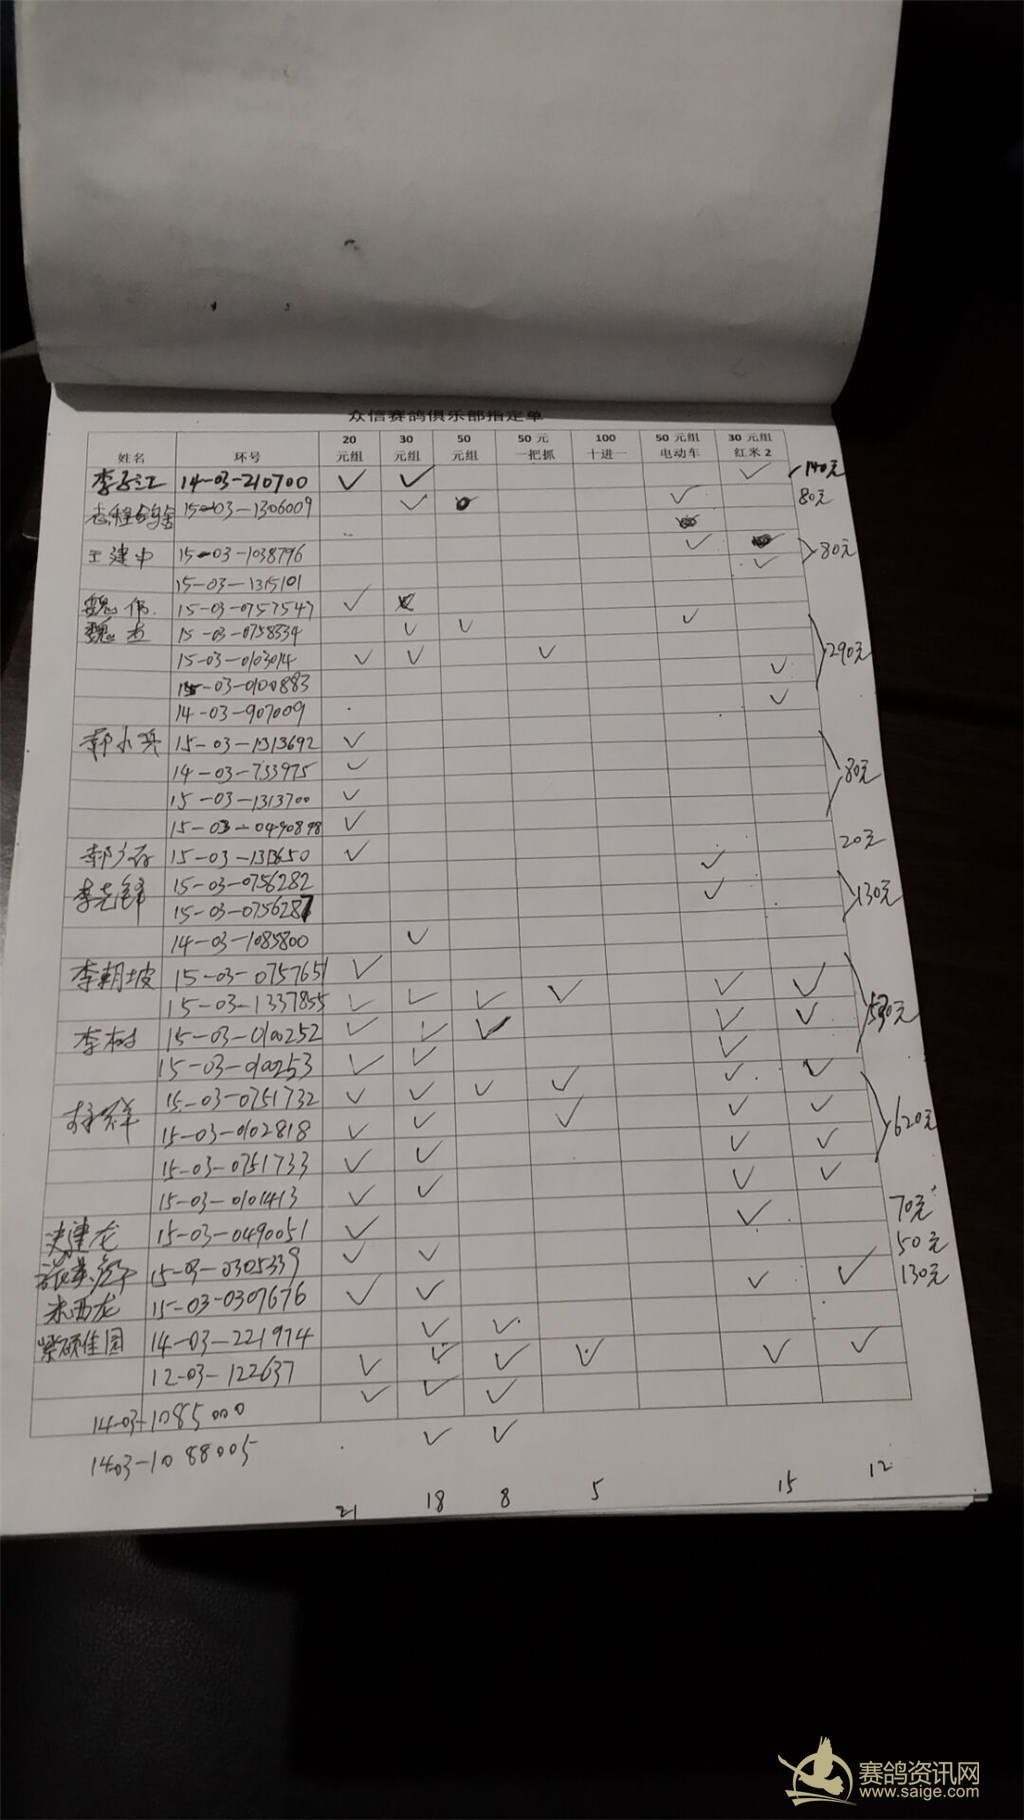 众信赛鸽俱乐部指定单
姓名 环号 20元组 30元组 50元组 50元一把抓 100十进一 50元组电动车 30元组红米2
14-03-210700 ✓ ✓ ✓ 140元
15-03-1306009 ✓ ✓ 80元
王建中 15-03-1038796 ✓ 80元
15-03-1315101 ✓
魏伟 15-03-0757547 ✓
魏杰 15-03-0758334 ✓ ✓ ✓
15-03-0103014 ✓ ✓ ✓ 290元
15-03-0100883 ✓
14-03-907009 ✓
郭小兵 15-03-1313692 ✓
14-03-733975 ✓ 80元
15-03-1313700 ✓
15-03-0490898 ✓
15-03-1313650 ✓ 20元
李先锋 15-03-0756282 ✓
15-03-0756287 ✓ 130元
14-03-1085800 ✓
李朝坡 15-03-0757651 ✓ ✓ ✓
15-03-1337855 ✓ ✓ ✓ ✓ ✓ ✓
李树 15-03-0100252 ✓ ✓ ✓ ✓
15-03-0100253 ✓ ✓ ✓ ✓
15-03-0751732 ✓ ✓ ✓ ✓ ✓ ✓ 620元
15-03-0102818 ✓ ✓ ✓ ✓ ✓
15-03-0751733 ✓ ✓ ✓ ✓
15-03-0101413 ✓ ✓ ✓
15-03-0490051 ✓ 70元
15-03-0305339 ✓ ✓ 50元
米西龙 15-03-0307676 ✓ ✓ ✓ ✓ 130元
紫硕佳园 14-03-221974 ✓ ✓
12-03-122637 ✓ ✓ ✓ ✓ ✓ ✓
14-03-1085000 ✓ ✓ ✓
14-03-1088005 ✓ ✓
21 18 8 5 15 12
赛鸽资讯网
www.saige.com